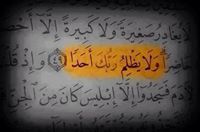 لَا يُغَادِرُ صَغِيرَةً وَلَا كَبِيرَةً إِلَّآ أَحْصَى
حَاضِرًا ۗ وَلَا يَظْلِمُ رَبُّكَ أَحَدًا ﴿٤٩﴾ وَإِذْ قُلْ
لِءَادَمَ فَسَجَدُوٓا۟ إِلَّآ إِبْلِيسَ كَانَ مِنَ ٱلْجِنِّ